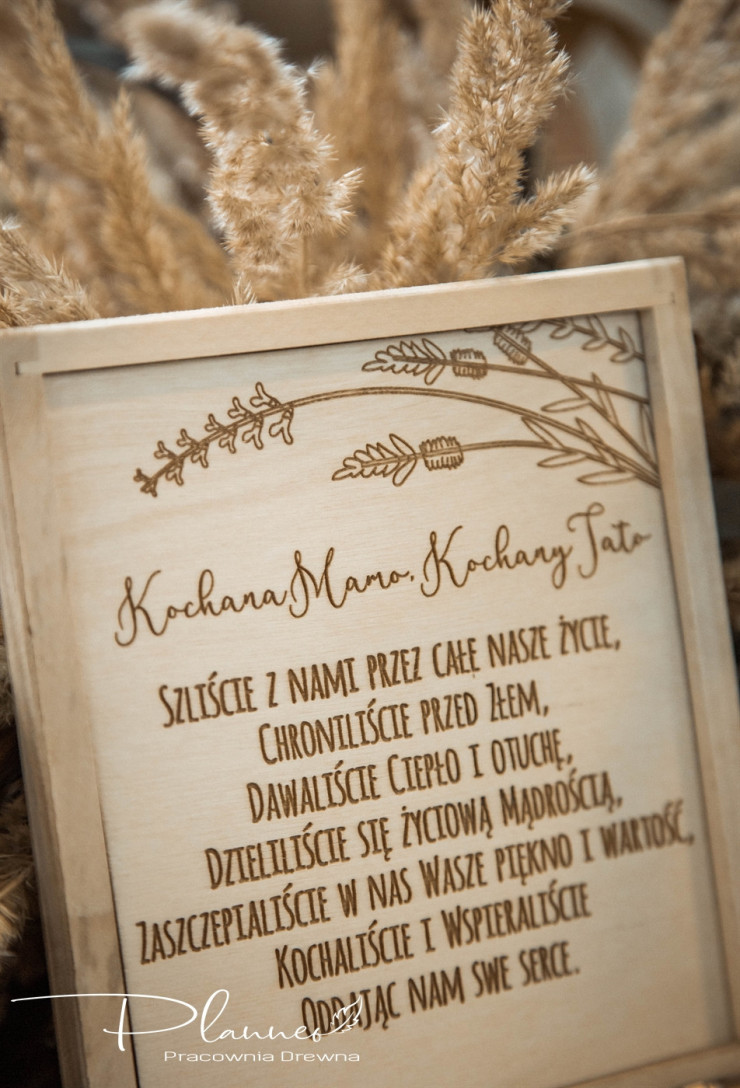 Kochana Mamo, Kochany Tato
Szliście z nami przez całe nasze życie,
Chroniliście przed Złem,
Dawaliście Ciepło i otuchę,
Dzieliliście się życiową Mądrością,
Zaszczepialiście w nas Wasze piękno i wartość,
Kochaliście i Wspieraliście
Oddając nam swe serce.
Planneo
Pracownia Drewna